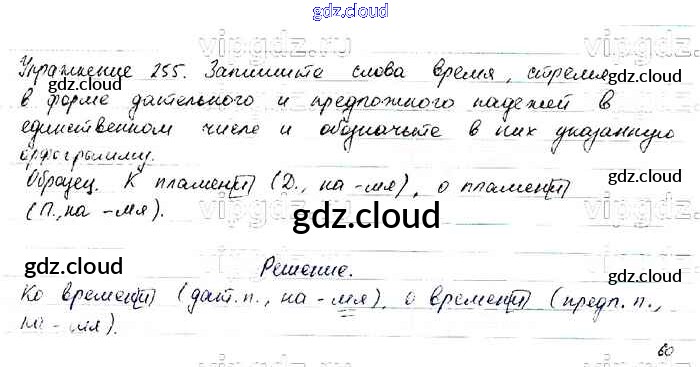 gdz.cloud
vipgdz.ru
Упражнение 255. Запишите слова время, стремя
gdz.cloud gdz.cloud
в форме дательного и предложного падежей в
единственном числе и обозначьте в них указанную
орфограмму.
gdz.cloud
Образец. К пламени (Д., на -мя), о пламени
(П., на -мя).
gdz.cloud
gdz.cloud Решение. gdz.cloud
Ко времени (дат.п., на -мя), о времени (предл. п.,
на -мя).
60